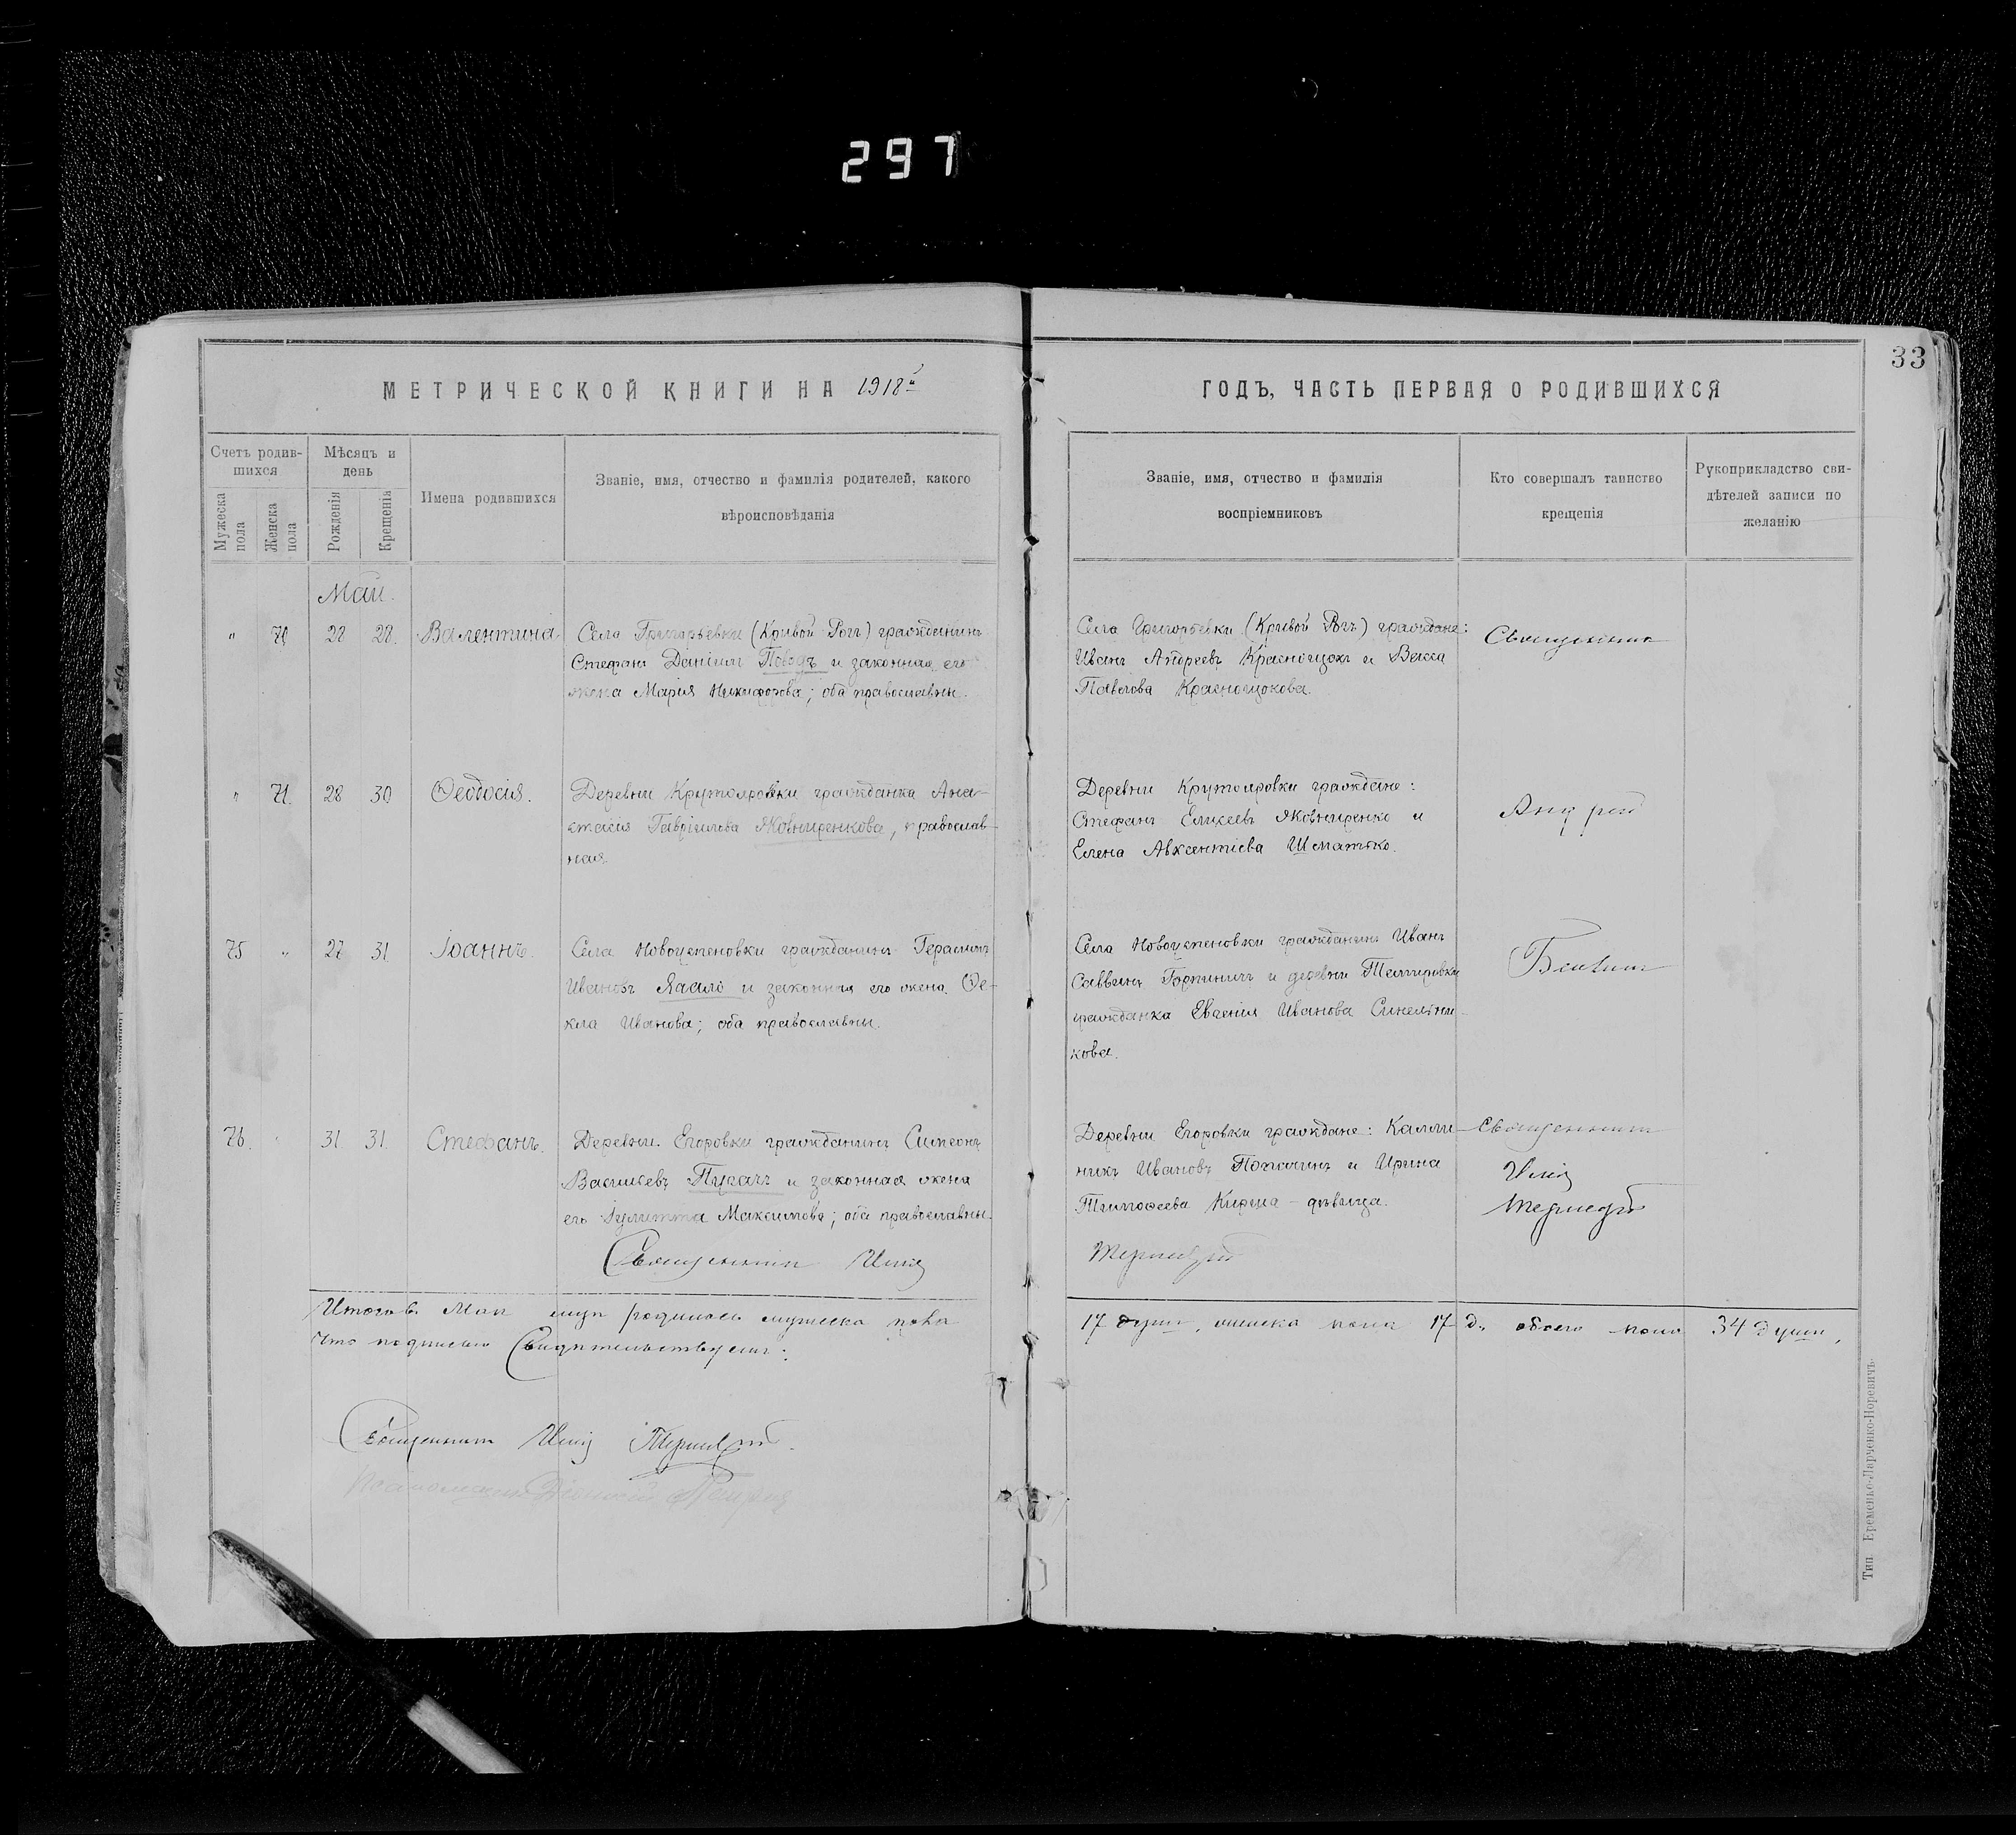 297
33
МЕТРИЧЕСКОЙ КНИГИ НА 1918й
ГОДЪ, ЧАСТЬ ПЕРВАЯ О РОДИВШИХСЯ
Счетъ родив-
шихся
Мужеска
пола
Женска
пола
Мѣсяцъ и
день
Рожденія
Крещенія
Имена родившихся
Званіе, имя, отчество и фамилія родителей, какого
вѣроисповѣданія
Званіе, имя, отчество и фамилія
воспріемниковъ
Кто совершалъ таинство
крещенія
Рукоприкладство сви-
дѣтелей записи по
желанію
Май.
" 70 28 28. Валентина
Села Григорьевки (Кривой Рогъ) гражданинъ
Стефанъ Даніиловъ Поводъ и законная его
жена Марія Никифорова; оба православны.
Села Григорьевки (Кривой Рогъ) граждане:
Иванъ Андреевъ Краснощокъ и Васса
Павлова Краснощокова.
Священникъ
" 71. 28 30 Ѳеодосія.
Деревни Крутояровки гражданка Ана-
стасія Гавріилова Яковниренкова, православ-
ная.
Деревни Крутояровки граждане:
Стефанъ Елисеевъ Яковниренко и
Елена Авксентіева Шматько.
Андрей
75 " 27 31 Іоаннъ.
Села Новоуспеновки гражданинъ Герасимъ
Ивановъ и законная его жена Ѳе-
кла Иванова; оба православны.
Села Новоуспеновки гражданинъ Иванъ
Саввинъ и деревни Темировки
гражданка Евгенія Иванова Синельни-
кова.
76. " 31 31. Стефанъ.
Деревни Егоровки гражданинъ Симеонъ
Васильевъ Пугачъ и законная жена
его Іулитта Максимова; оба православны.
Деревни Егоровки граждане: Калли-
никъ Ивановъ и Ирина
Тимоѳеева Кирпа - дѣвица.
Священникъ
Священникъ
Итого въ Маѣ родилось мужеска пола
17 душъ, женска пола 17 д. обоего пола 34 души,
что подписью свидѣтельствуемъ:
Священникъ
Псаломщикъ
Тип. Еременко-Ларченко-Норевичъ.